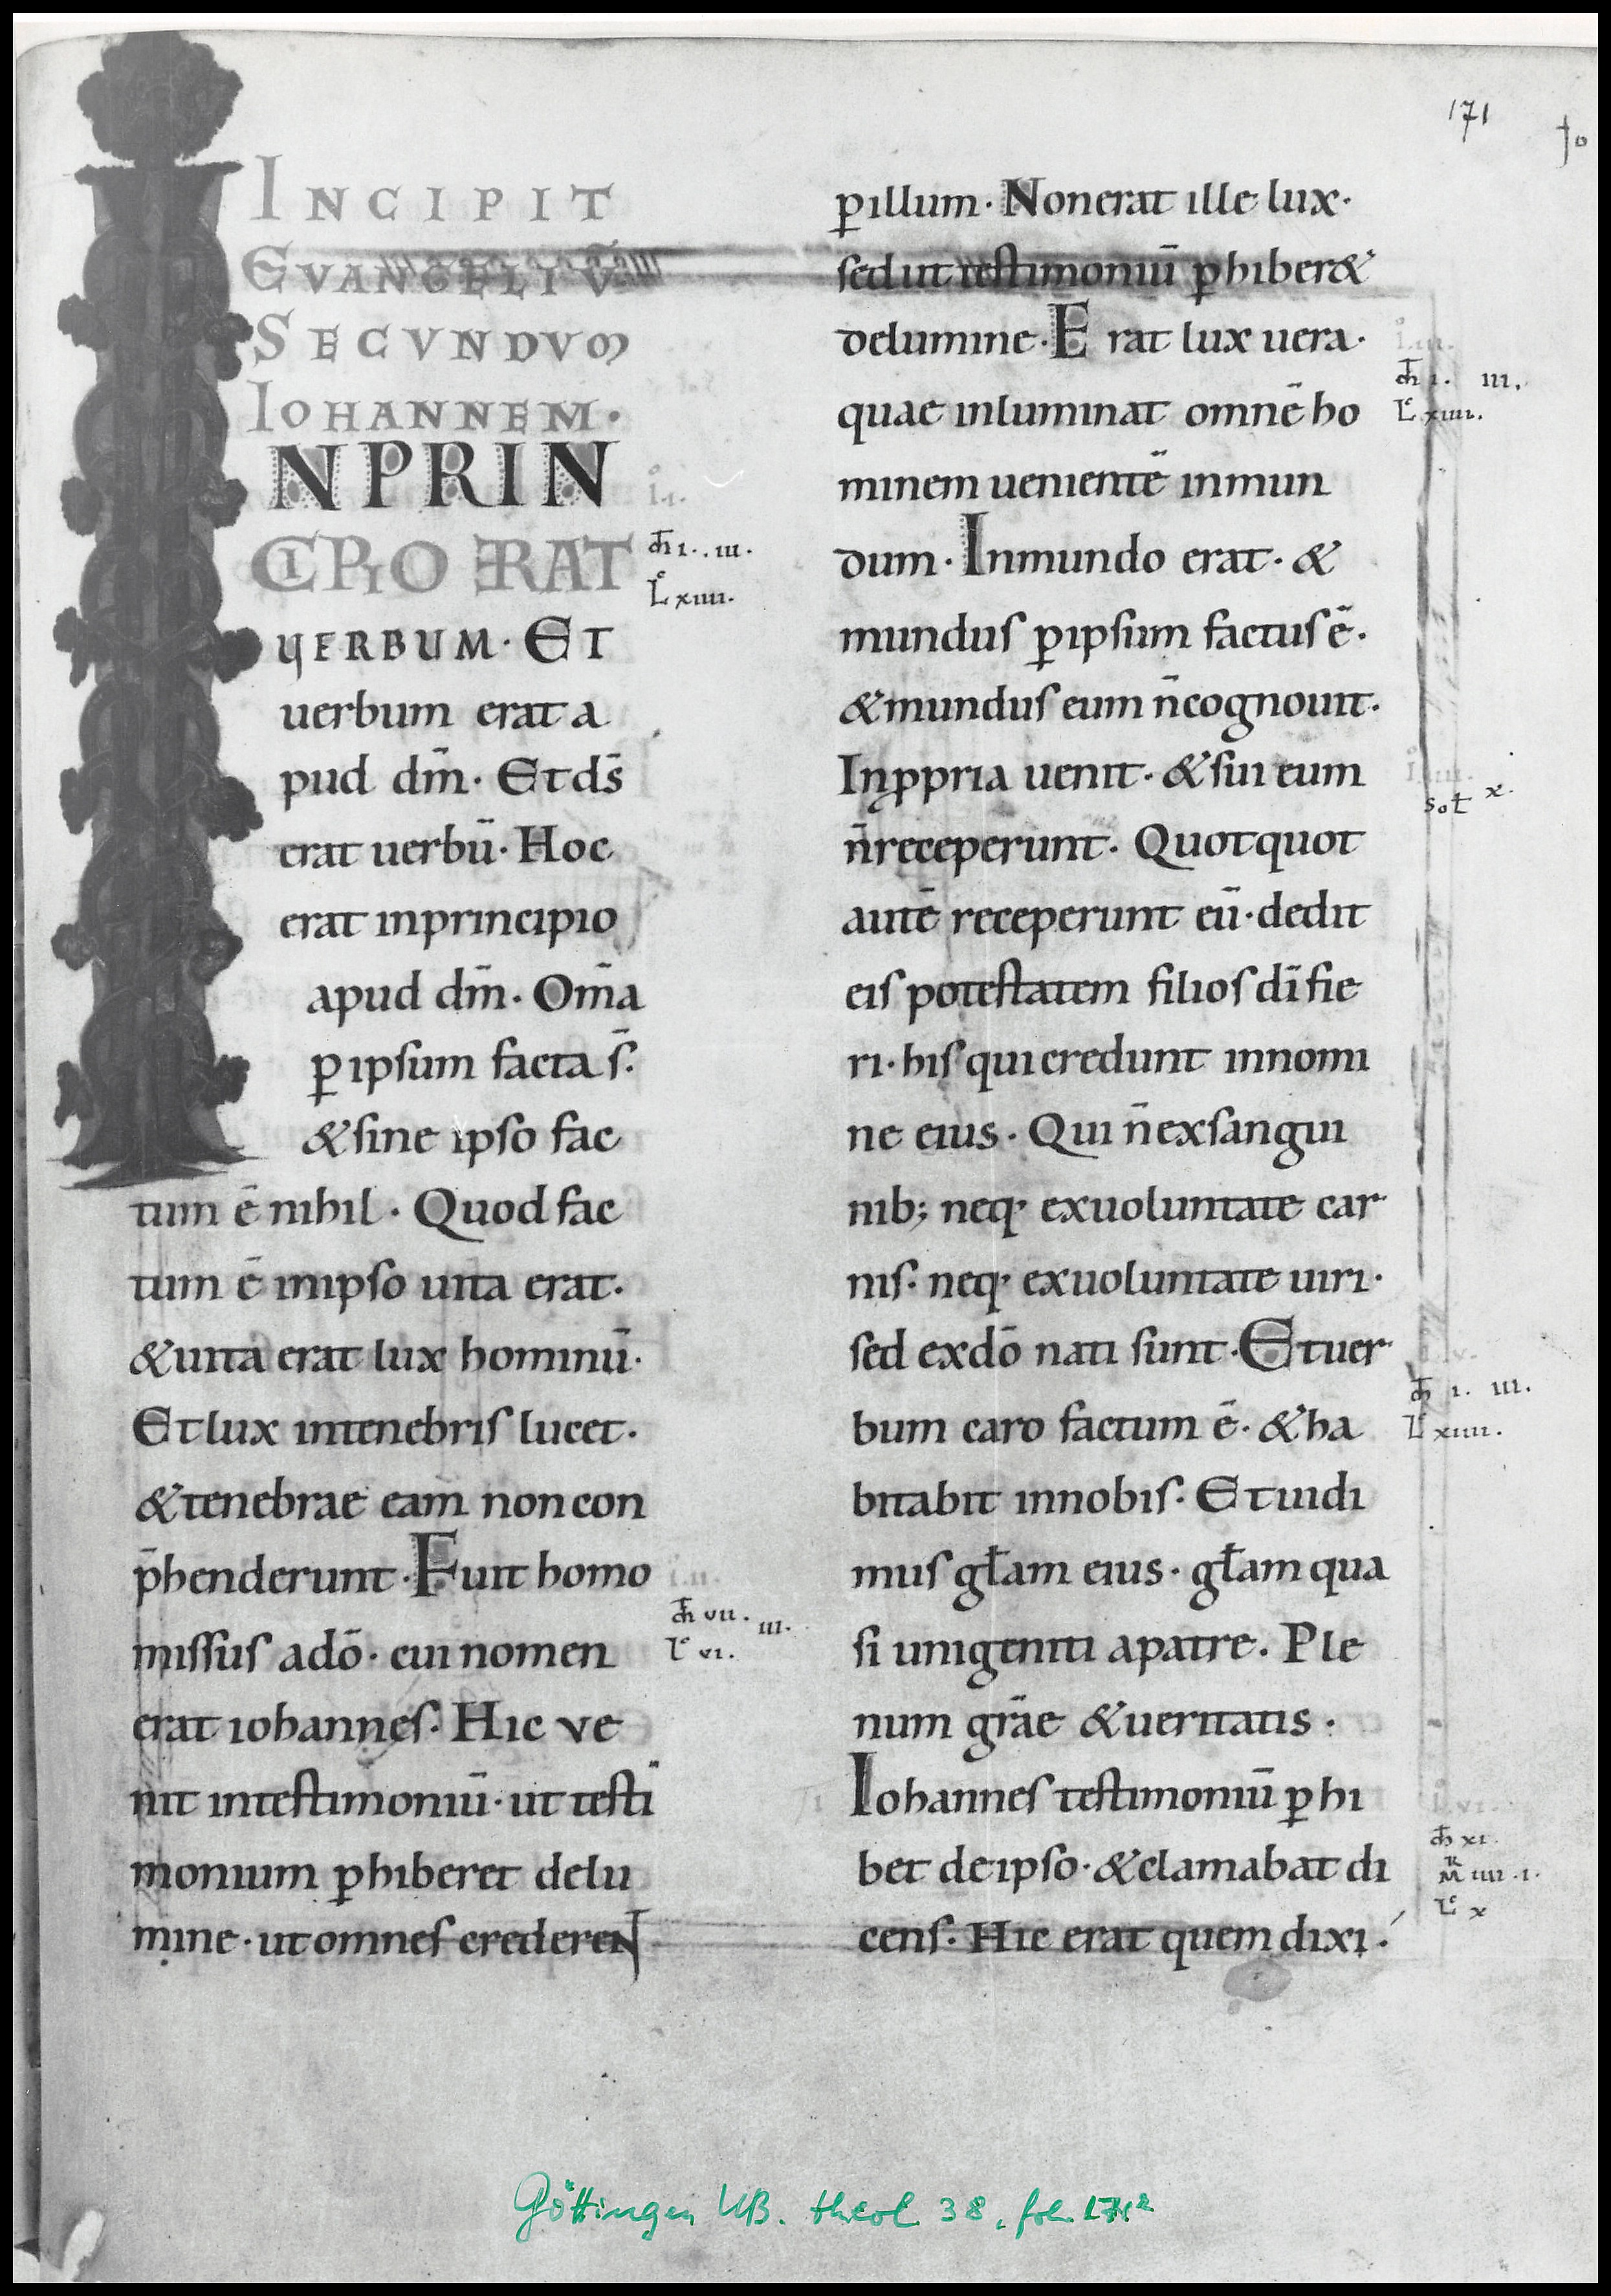 171
Jo
INCIPIT
EVANGELIV̄
SECVNDVM
IOHANNEM·
NPRIN
CIPIO ERAT
ch̄ i. .iii.
L̄c xiiii.
VERBUM· ET
uerbum erat a
pud dm̄· Et ds̄
erat uerbū· Hoc
erat inprincipio
apud dm̄· Om̄a
ꝑ ipsum facta s̄·
&sine ipso fac
tum ē nihil· Quod fac
tum ē inipso uita erat·
&uita erat lux hominū·
Et lux intenebris lucet·
&tenebrae eam non con
p̄henderunt· Fuit homo
i.ii.
ch̄ vii. iii.
missus adō· cui nomen
L̄c vi.
erat iohannes· Hic ve
nit intestimoniū· ut testi
monium ꝑhiberet delu
mine· ut omnes crederent
ꝑ illum· Non erat ille lux·
sed ut testimoniū ꝑhiber&
delumine· Erat lux uera·
ch̄ i. iii.
quae inluminat omnē ho
L̄c xiiii.
minem uenientē inmun
dum· Inmundo erat· &
mundus ꝑ ipsum factus ē·
&mundus eum n̄cognouit·
Inꝓpria uenit· &sui eum
sol x.
n̄receperunt· Quotquot
autē receperunt eū· dedit
eis potestatem filios dī fie
ri· his qui credunt innomi
ne eius· Qui n̄ exsangui
nib; neq· exuoluntate car
nis· neq· exuoluntate uiri·
sed exdō nati sunt· Et uer
ch̄ i. iii.
bum caro factum ē· &ha
L̄c xiiii.
bitabit innobis· Et uidi
mus gl̄am eius· gl̄am qua
si unigeniti apatre· Ple
num gr̄ae &ueritatis·
Iohannes testimoniū ꝑhi
i.vi.
ch̄ xi.
bet de ipso· &clamabat di
M̄ iiii.i.
L̄c x
cens· Hic erat quem dixi·
Göttingen UB. theol 38, fol. 171r